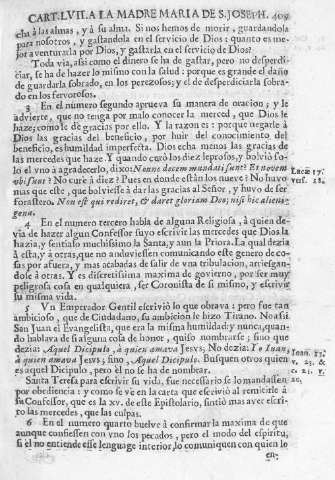 CART. LVII. A LA MADRE MARIA DE S. JOSEPH. 409
cha à las almas, y à su alma. Si nos hemos de morir, guardandola
para nosotros, y gastandola en el servicio de Dios: quanto es me-
jor aventurarla por Dios, y gastarla en el servicio de Dios?
Toda via, assi como el dinero se ha de gastar, pero no desperdi-
ciar, se ha de hacer lo mismo con la salud: porque es grande el daño
de guardarla sobrado, en los perezosos; y el de desperdiciarla sobra-
do en los fervorosos.
3 En el numero segundo aprueva su manera de oracion; y le
advierte, que no tenga por malo conocer la merced, que Dios le
hace; como le de gracias por ello. Y la razon es: porque negarle à
Dios las gracias del beneficio, por huir del conocimiento del
beneficio, es humildad imperfecta. Dios echa menos las gracias de
las mercedes que haze. Y quando curò los diez leprosos, y bolviò so-
lo el vno à agradecerlo, dixo: Nonne decem mundati sunt? Et novem
ubi sunt? No curè à diez? Pues en donde estàn los nueve? No huvo
mas que este, que bolviesse à dar las gracias al Señor, y huvo de ser
forastero. Non est qui rediret, & daret gloriam Deo, nisi hic alieni-
gena.
Luc. 17.
vers. 18.
4 En el numero tercero habla de alguna Religiosa, à quien de-
via de hazer algun Confessor suyo escrivir las mercedes que Dios la
hazia, y sentialo muchissimo la Santa, y aun la Priora. La qual dezia
à esta, y à otras, que no anduviessen comunicando este genero de co-
sas por afuera, y mas acabadas de salir de vna tribulacion, arriesgan-
dose à otras. Y es discretissima maxima de govierno, por ser muy
peligrosa cosa en qualquiera, ser Coronista de si mismo, y escrivir
su misma vida.
5 Vn Emperador Gentil escriviò lo que obrava: pero fue tan
ambicioso, que de Ciudadano, su ambicion le hizo Tirano. No assi
San Juan el Evangelista, que era la misma humildad: y nunca, quan-
do hablava de si alguna cosa de honor, quiso nombrarse; sino que
dezia: Aquel Dicipulo, à quien amava Jesvs; No dezia: Yo Juan,
à quien amava Jesvs; sino, Aquel Dicipulo. Busquen otros quien
es aquel Dicipulo, pero èl no se ha de nombrar.
Joan. 13.
v. 23. &
c. 21. v.
20.
Santa Teresa para escrivir su vida, fue necessario se lo mandassen
por obediencia: y como se vè en la carta que escriviò al remitirle à
su Confessor, que es la xv. de este Epistolario, sintiò mas aver escri-
to las mercedes, que las culpas.
6 En el numero quarto buelve à confirmar la maxima de que
aunque confiessen con vno los pecados, pero el modo del espiritu,
si el no entiende esse lenguage interior, lo comuniquen con quien lo
en-